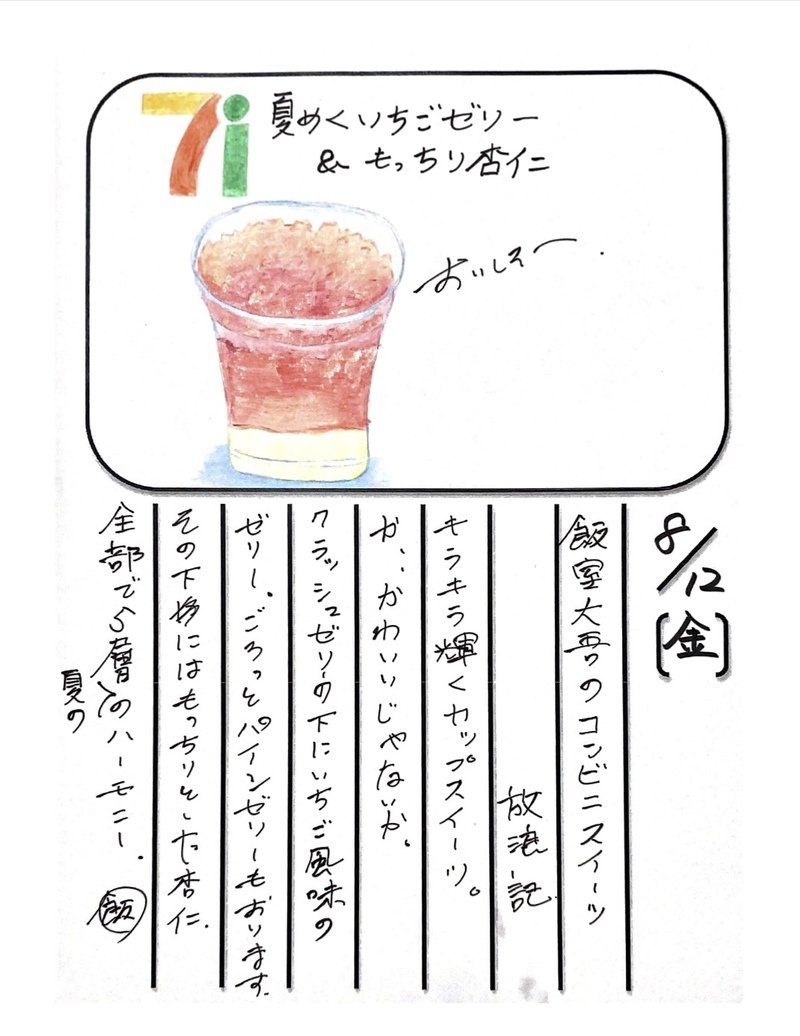 7i
夏めくいちごゼリー
& もっちり杏仁
おいしそー.
8/12[金]
飯室大吾のコンビニスイーツ
放浪記
キラキラ輝くカップスイーツ。
か、かわいいじゃないか。
クラッシュゼリーの下にいちご風味の
ゼリー。ごろっとパインゼリーもおります。
その下段にはもっちりとした杏仁.
全部で5層のハーモニー.
夏の
飯